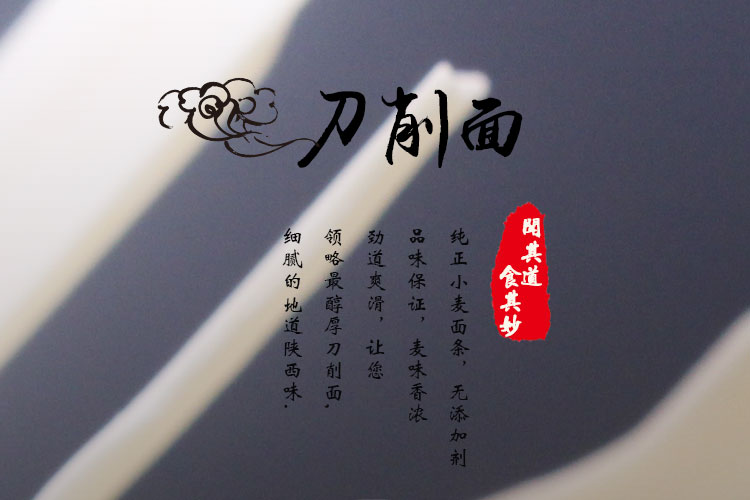 刀削面
闻其道
食其妙
纯正小麦面条，无添加剂
品味保证，麦味香浓
劲道爽滑，让您
领略最醇厚刀削面.
细腻的地道陕西味.